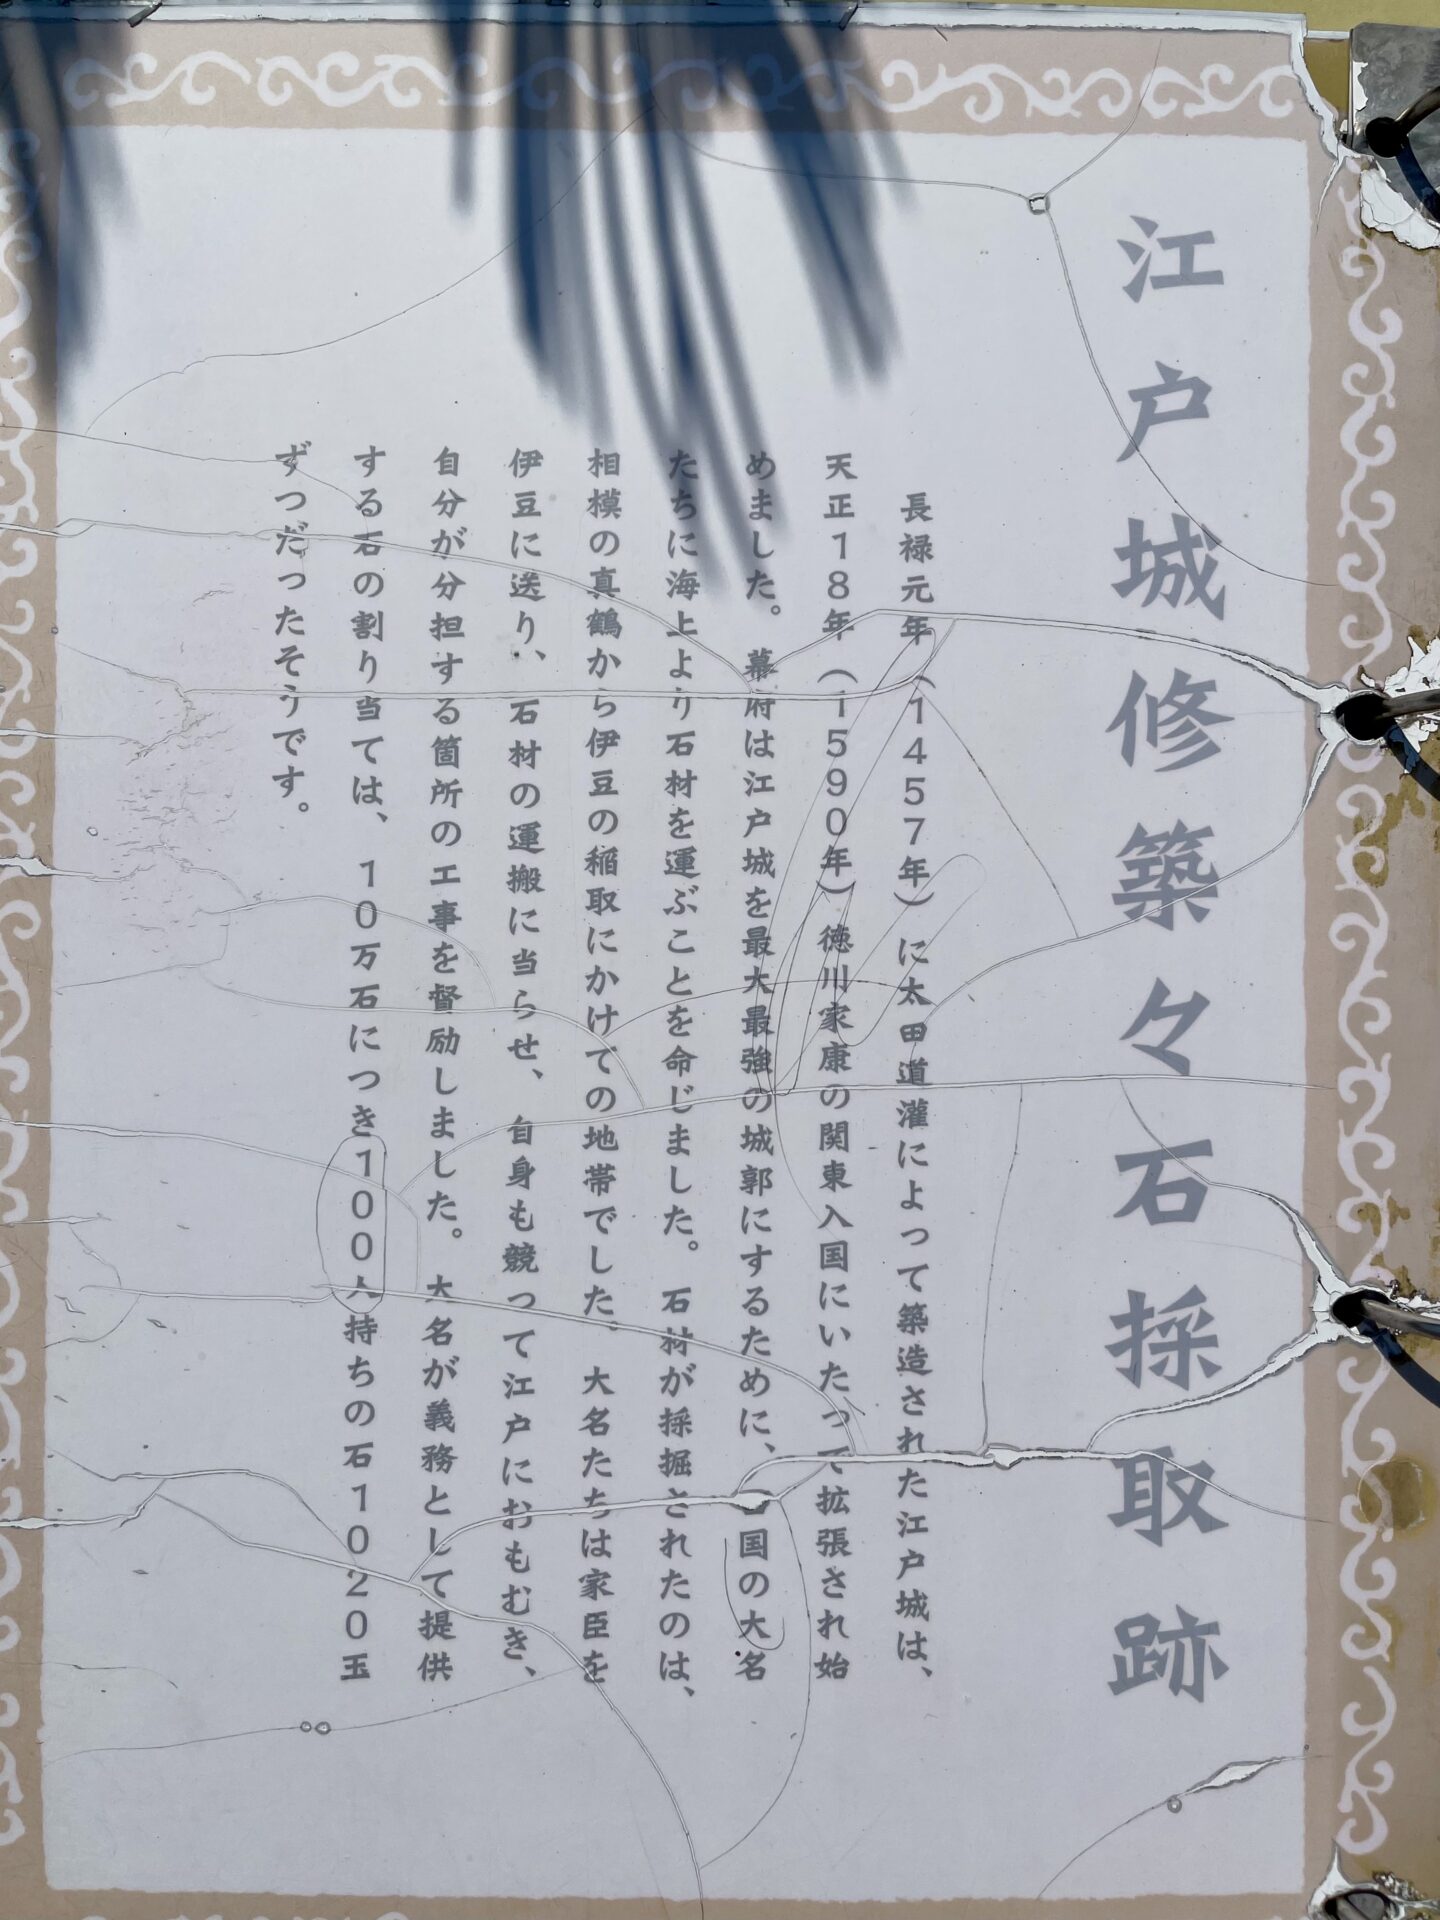 江戸城修築々石採取跡
長禄元年（1457年）に太田道灌によって築造された江戸城は、
天正18年（1590年）徳川家康の関東入国にいたって拡張され始
めました。幕府は江戸城を最大最強の城郭にするために、国の大名
たちに海上より石材を運ぶことを命じました。石材が採掘されたのは、
相模の真鶴から伊豆の稲取にかけての地帯でした。大名たちは家臣を
伊豆に送り、石材の運搬に当らせ、自身も競って江戸におもむき、
自分が分担する箇所の工事を督励しました。大名が義務として提供
する石の割り当ては、10万石につき100人持ちの石1020玉
ずつだったそうです。